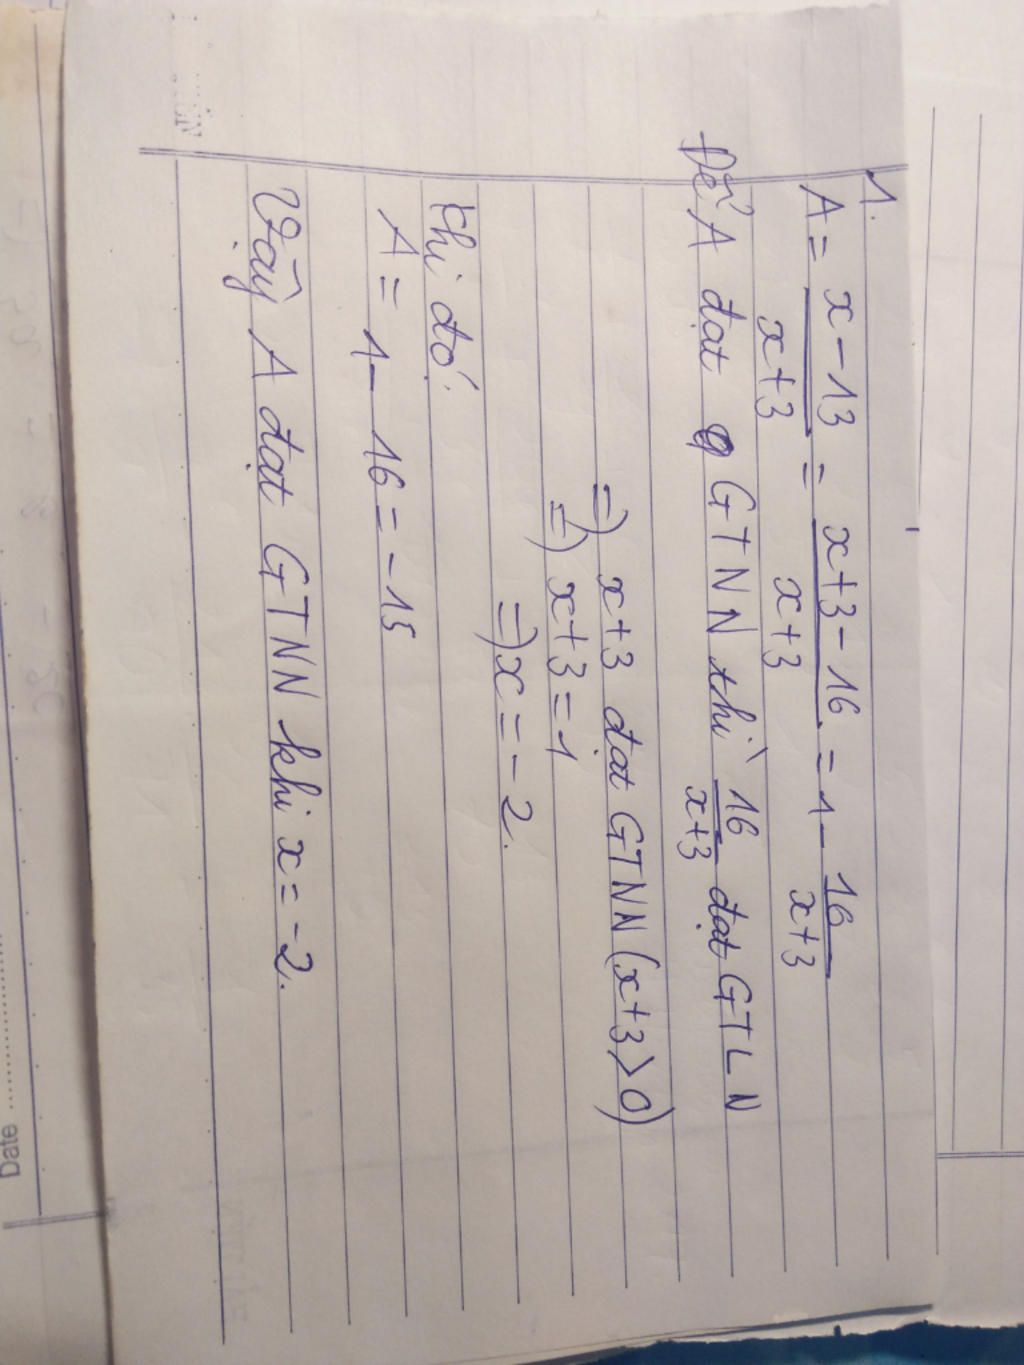 1.
A = x - 13 / x + 3 = x + 3 - 16 / x + 3 = 1 - 16 / x + 3
Để A đạt GTNN thì 16 / x + 3 đạt GTLN
=) x + 3 đạt GTNN (x + 3 > 0)
=) x + 3 = 1
=) x = - 2.
Khi đó:
A = 1 - 16 = - 15
Vậy A đạt GTNN khi x = - 2.
Date